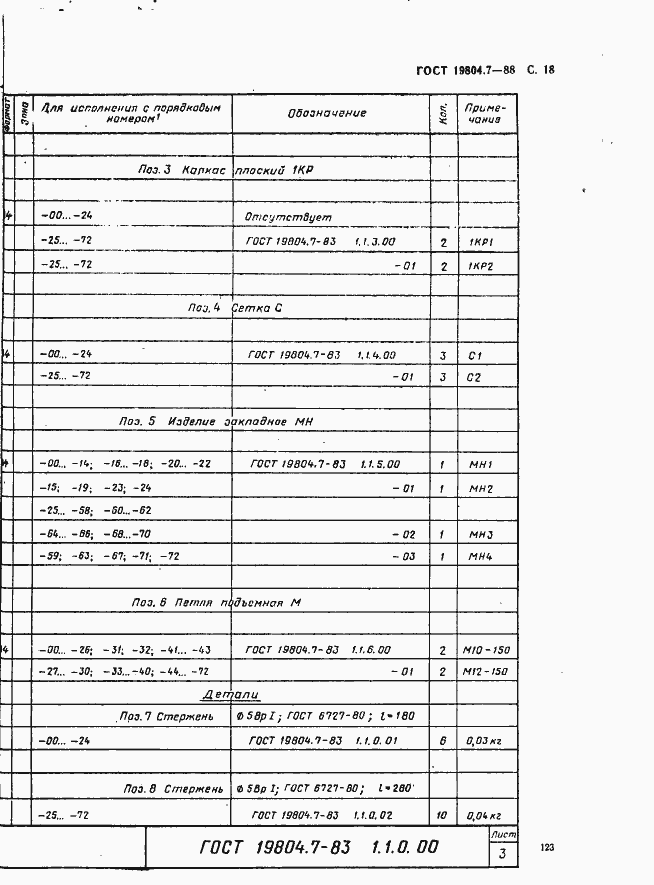 ГОСТ 19804.7—88 С. 18
Формат Зона Для исполнения с порядковым номером¹ Обозначение Кол. Примечания
Поз. 3 Каркас плоский 1КР
4 -00... -24 Отсутствует
-25... -72 ГОСТ 19804.7-83 1.1.3.00 2 1КР1
-25... -72 -01 2 1КР2
Поз. 4 Сетка С
4 -00... -24 ГОСТ 19804.7-83 1.1.4.00 3 С1
-25... -72 -01 3 С2
Поз. 5 Изделие закладное МН
4 -00... -14; -16... -18; -20... -22 ГОСТ 19804.7-83 1.1.5.00 1 МН1
-15; -19; -23; -24 -01 1 МН2
-25... -58; -60...-62
-64... -66; -68...-70 -02 1 МН3
-59; -63; -67; -71; -72 -03 1 МН4
Поз. 6 Петля подъемная М
4 -00... -26; -31; -32; -41... -43 ГОСТ 19804.7-83 1.1.6.00 2 М10-150
-27... -30; -33...-40; -44... -72 -01 2 М12-150
Детали
Поз. 7 Стержень ф 5Вр I; ГОСТ 6727-80; l=180
-00... -24 ГОСТ 19804.7-83 1.1.0.01 6 0,03кг
Поз. 8 Стержень ф 5Вр I; ГОСТ 6727-80; l=280
-25... -72 ГОСТ 19804.7-83 1.1.0.02 10 0,04кг
ГОСТ 19804.7-83 1.1.0.00
Лист
3
123